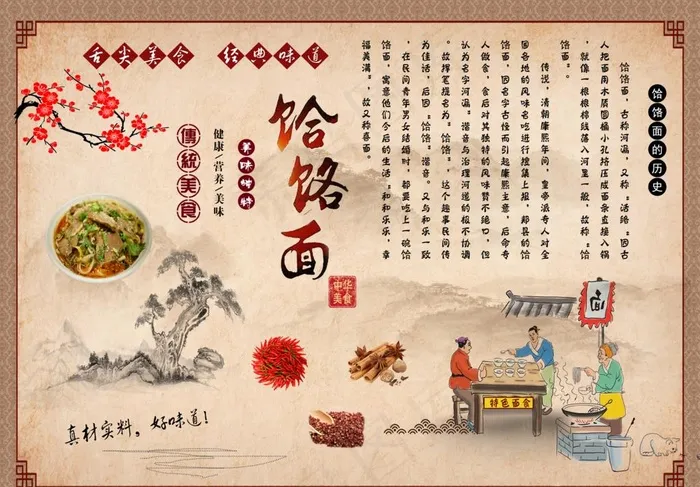 舌尖美食 经典味道
饸饹面的历史
饸饹面，古称河漏，又称"活络"因古
人把面用木质圆桶小孔挤压成面条直接入锅
，就像一根根棉线落入河里一般，故称"饸
饹面"。
传说，清朝康熙年间，皇帝派专人对全
国各地的风味名吃进行搜集上报，郏县的饸
饹面，因名字古怪而引起康熙主意，后命专
人做食，食后对其独特的风味赞不绝口，但
认为名字河漏"谐音与治理河道的极不协调
。故挥笔提名为"饸饹"，这个趣事民间传
为佳话，后因"饸饹"谐音。又与和乐一致
，在民间青年男女结婚时，都要吃上一碗饸
饹面，寓意他们今后的生活"和和乐乐，幸
福美满"，故又称喜面。
饸饹面
中华美食
美味独特
健康/营养/美味
傳統美食
面
特色面食
真材实料，好味道!